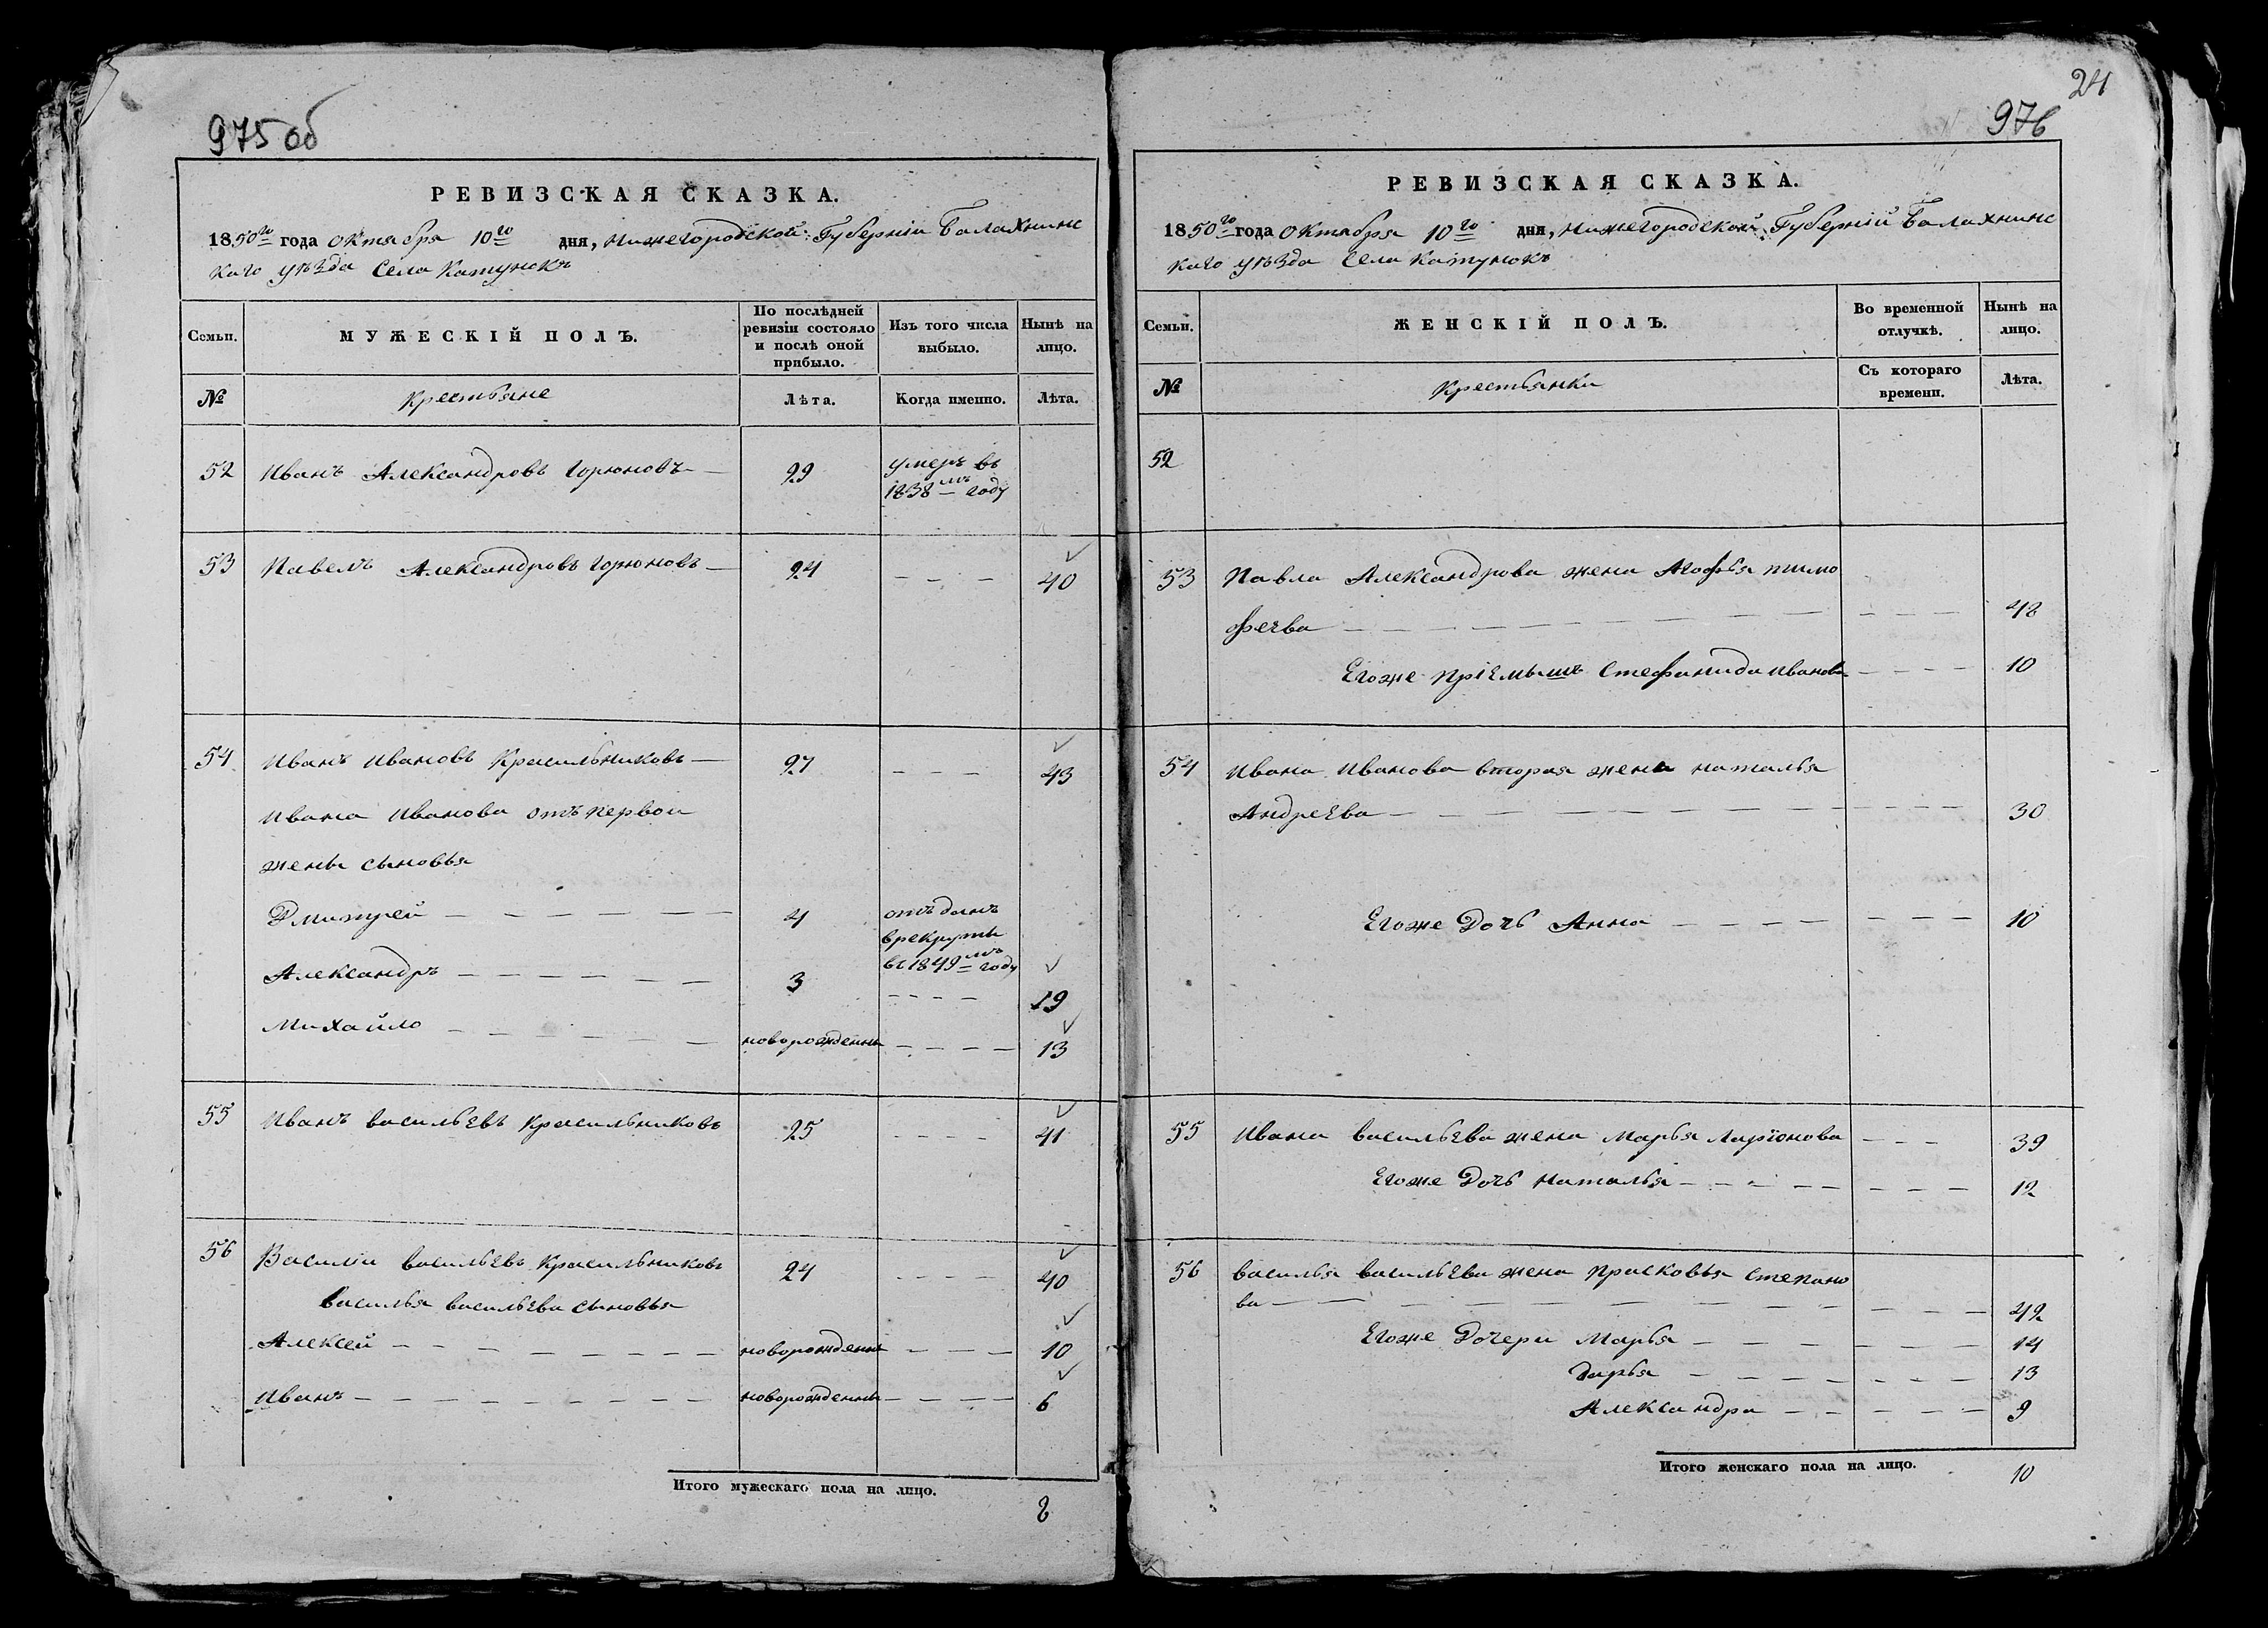 975 об
РЕВИЗСКАЯ СКАЗКА.
1850го года октября 10го дня, Нижегородской Губернiи Балахнинс
каго уѣзда села Катунокъ
Семьи.
МУЖЕСКІЙ ПОЛЪ.
По послѣдней
ревизіи состояло
и послѣ оной
прибыло.
Изъ того числа
выбыло.
Нынѣ на
лицо.
№
Крестьяне
Лѣта.
Когда именно.
Лѣта.
52 Иванъ Александровъ Горюновъ — 29 умеръ въ
1838мъ году
53 Павелъ Александровъ Горюновъ — 24 - - - 40
54 Иванъ Ивановъ Красильниковъ — 27 - - - 43
Ивана Иванова отъ первой
жены сыновья
Дмитрей — 4 отъданъ
врекруты
вс1849мъ году
Александръ — 3 - - - - 19
Михайло — новорожденны - - - - 13
55 Иванъ васильевъ Красильниковъ 25 - - - - 41
56 Василіи васильевъ Красильниковъ 24 - - - - 40
василья васильева сыновья
Алексей — новорожденны - - - 10
Иванъ — новорожденны - - - - 6
Итого мужескаго пола на лицо.
8
24
976
РЕВИЗСКАЯ СКАЗКА.
1850го года Октября 10го дня, Нижегородской Губерній Балахнинс
каго уѣзда Села Катунокъ
Семьи.
ЖЕНСКІЙ ПОЛЪ.
Во временной
отлучкѣ.
Нынѣ на
лицо.
№
Крестьянки
Съ котораго
времени.
Лѣта.
52
53 Павла Александрова жена Агофья тимо
феева — - - - 48
Егоже пріемышъ Стефанида Иванова - - - - 10
54 Ивана Иванова вторая жена наталья
Андреева — - - - - 30
Егоже Дочь Анна — - - - 10
55 Ивана васильева жена Марья Ларіонова - - - 39
Егоже Дочь Наталья — - - - 12
56 василья васильева жена Прасковья Степано
ва — - - - - 42
Егоже Дочери Марья — - - - - 14
Дарья — - - - - 13
Александра — - - - - 9
Итого женскаго пола на лицо.
10